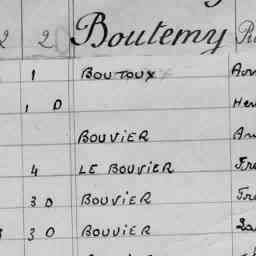 2 20 Boutemy
1 BOUTOUX
1 0
BOUVIER
4 LE BOUVIER
30 BOUVIER
30 BOUVIER